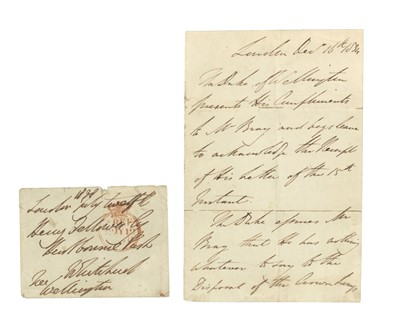 London July twelfth
Henry Fellowes Esq
Wellington
London Decr 18th 1834
The Duke of Wellington
presents His Compliments
to Mr Bray and begs leave
to acknowledge the Receipt
of His Letter of the 15th
Instant.
The Duke assures Mr
Bray that He has nothing
Whatever to say to the
Disposal of the